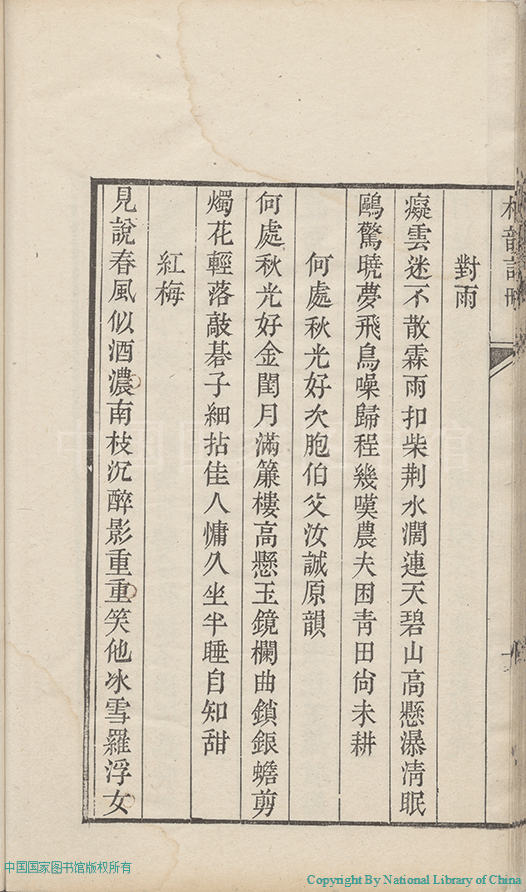 對雨
癡雲迷不散霖雨扣柴荆水濶連天碧山高懸瀑淸眠
鷗驚曉夢飛鳥噪歸程幾嘆農夫困靑田尙未耕
何處秋光好次胞伯父汝誠原韻
何處秋光好金閨月滿簾樓高懸玉鏡欄曲鎖銀蟾剪
燭花輕落敲碁子細拈佳人慵久坐半睡自知甜
紅梅
見說春風似酒濃南枝沉醉影重重笑他冰雪羅浮女
中国国家图书馆
中国国家图书馆版权所有
Copyright By National Library of China